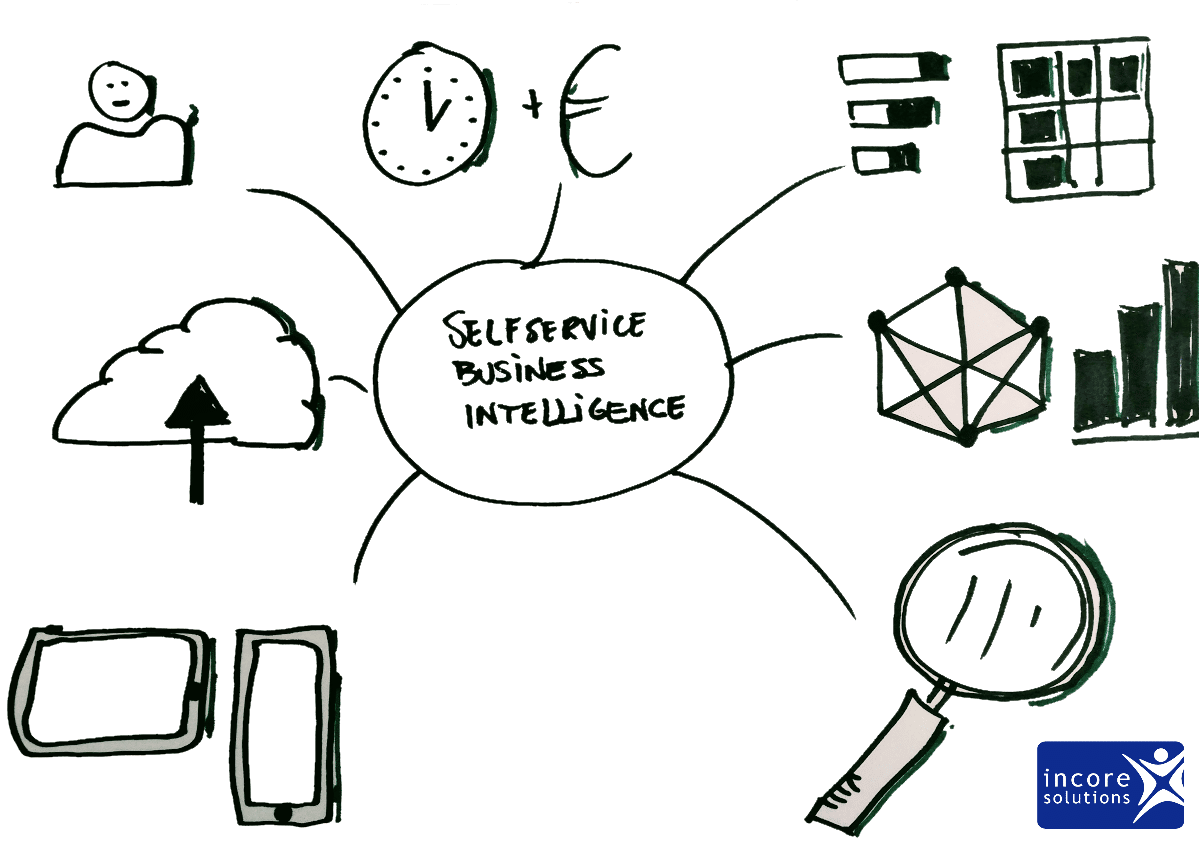 + €
SELFSERVICE
BUSINESS
INTELLIGENCE
incore
solutions